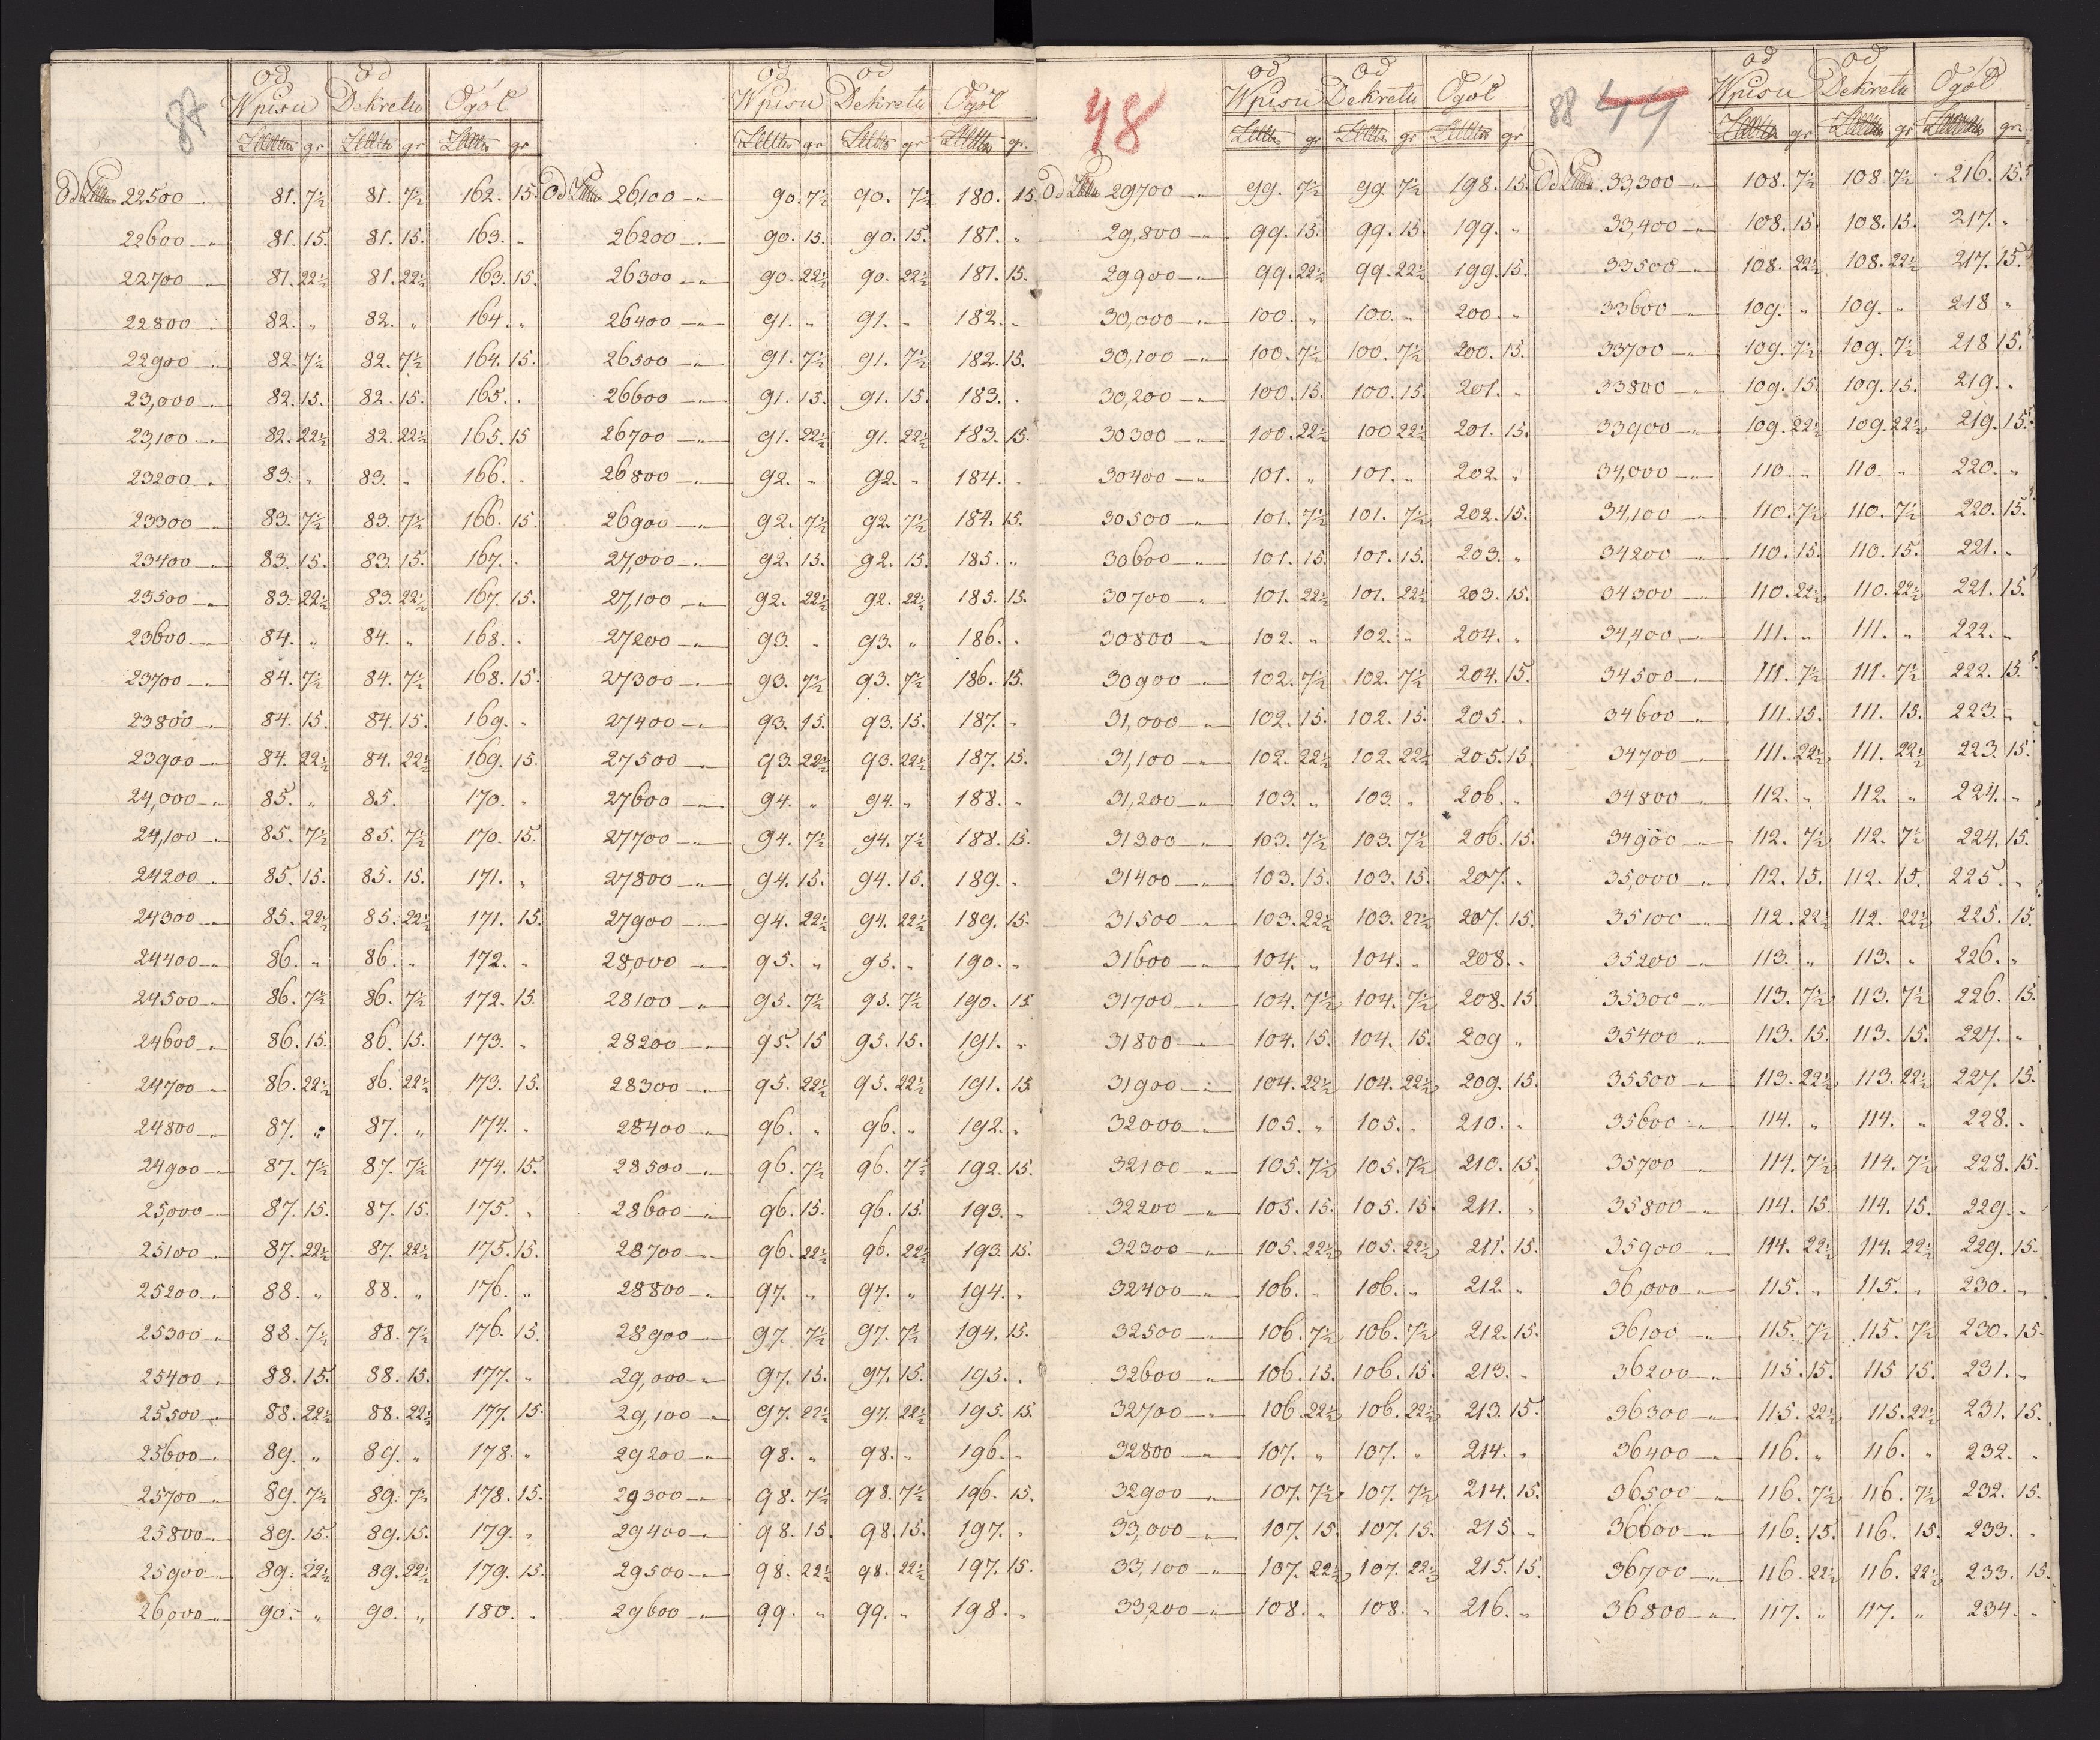 87
od od
Wpisu Dekretu Ogół
gr gr gr
Od 22500 81. 7½ 81. 7½ 162. 15.
22600 81. 15. 81. 15. 163. "
22700 81. 22½ 81. 22½ 163. 15.
22800 82. " 82. " 164. "
22900 82. 7½ 82. 7½ 164. 15.
23,000 82. 15. 82. 15. 165. "
23,100 82. 22½ 82. 22½ 165. 15
23200 83. " 83. " 166. "
23300 83. 7½ 83. 7½ 166. 15.
23400 83. 15. 83. 15. 167. "
23500 83. 22½ 83. 22½ 167. 15.
23600 84. " 84. " 168. "
23700 84. 7½ 84. 7½ 168. 15.
23800 84. 15. 84. 15. 169. "
23900 84. 22½ 84. 22½ 169. 15.
24,000 85. " 85. 170. "
24,100 85. 7½ 85. 7½ 170. 15.
24200 85. 15. 85. 15. 171. "
24300 85. 22½ 85. 22½ 171. 15.
24400 86. " 86. " 172. "
24500 86. 7½ 86. 7½ 172. 15.
24600 86. 15. 86. 15. 173. "
24700 86. 22½ 86. 22½ 173. 15.
24800 87. " 87. " 174. "
24900 87. 7½ 87. 7½ 174. 15.
25,000 87. 15. 87. 15. 175. "
25100 87. 22½ 87. 22½ 175. 15.
25200 88. " 88. " 176. "
25300 88. 7½ 88. 7½ 176. 15.
25400 88. 15. 88. 15. 177. "
25500 88. 22½ 88. 22½ 177. 15.
25600 89. " 89. " 178. "
25700 89. 7½ 89. 7½ 178. 15.
25800 89. 15. 89. 15. 179. "
25900 89. 22½ 89. 22½ 179. 15.
26,000 90. " 90. " 180. "
od od
Wpisu Dekretu Ogół
gr gr gr.
Od 26,100 90. 7½ 90. 7½ 180. 15.
26200 90. 15. 90. 15. 181. "
26300 90. 22½ 90. 22½ 181. 15.
26400 91. " 91. " 182. "
26500 91. 7½ 91. 7½ 182. 15.
26600 91. 15. 91. 15. 183. "
26700 91. 22½ 91. 22½ 183. 15.
26800 92. " 92. " 184. "
26900 92. 7½ 92. 7½ 184. 15.
27,000 92. 15. 92. 15. 185. "
27,100 92. 22½ 92. 22½ 185. 15.
27200 93. " 93. " 186. "
27300 93. 7½ 93. 7½ 186. 15.
27400 93. 15. 93. 15. 187. "
27500 93. 22½ 93. 22½ 187. 15.
27600 94. " 94. " 188. "
27700 94. 7½ 94. 7½ 188. 15.
27800 94. 15. 94. 15. 189. "
27900 94. 22½ 94. 22½ 189. 15.
28,000 95. " 95. " 190. "
28100 95. 7½ 95. 7½ 190. 15
28200 95. 15 95. 15. 191. "
28300 95. 22½ 95. 22½ 191. 15
28400 96. " 96. " 192. "
28500 96. 7½ 96. 7½ 192. 15.
28600 96. 15. 96. 15. 193. "
28700 96. 22½ 96. 22½ 193. 15.
28800 97. " 97. " 194. "
28900 97. 7½ 97. 7½ 194. 15.
29,000 97. 15. 97. 15. 195. "
29,100 97. 22½ 97. 22½ 195. 15.
29200 98. " 98. " 196. "
29300 98. 7½ 98. 7½ 196. 15.
29400 98. 15. 98. 15. 197. "
29500 98. 22½ 98. 22½ 197. 15.
29600 99. " 99. " 198. "
48
od od
Wpisu Dekretu Ogół
gr gr gr
Od 29700 99. 7½ 99. 7½ 198. 15.
29,800 99. 15. 99. 15. 199. "
29900 99. 22½ 99. 22½ 199. 15.
30,000 100. " 100. " 200. "
30,100 100. 7½ 100. 7½ 200. 15.
30,200 100. 15. 100. 15. 201. "
30300 100. 22½ 100 22½ 201. 15.
30400 101. " 101. " 202. "
30500 101. 7½ 101. 7½ 202. 15.
30600 101. 15. 101. 15. 203. "
30700 101. 22½ 101. 22½ 203. 15.
30800 102. " 102. " 204. "
30900 102. 7½ 102. 7½ 204. 15.
31,000 102. 15. 102. 15. 205. "
31,100 102. 22½ 102. 22½ 205. 15.
31,200 103. " 103. " 206. "
31300 103. 7½ 103. 7½ 206. 15.
31400 103. 15. 103. 15. 207. "
31500 103. 22½ 103. 22½ 207. 15.
31600 104. " 104. " 208. "
31700 104. 7½ 104. 7½ 208. 15.
31800 104. 15. 104. 15. 209 "
31900 104. 22½ 104. 22½ 209. 15.
32000 105. " 105. " 210. "
32100 105. 7½ 105. 7½ 210. 15.
32200 105. 15. 105. 15. 211. "
32300 105. 22½ 105. 22½ 211. 15.
32400 106. " 106. " 212. "
32500 106. 7½ 106. 7½ 212. 15.
32600 106. 15. 106. 15. 213. "
32700 106. 22½ 106. 22½ 213. 15.
32800 107. " 107. " 214. "
32900 107. 7½ 107. 7½ 214. 15.
33,000 107. 15. 107. 15. 215. "
33,100 107. 22½ 107. 22½ 215. 15.
33,200 108. " 108. " 216. "
88 44
od od
Wpisu Dekretu Ogół
gr gr gr
Od 33,300 108. 7½ 108 7½ 216. 15.
33,400 108. 15. 108. 15. 217. "
33500 108. 22½ 108. 22½ 217. 15.
33600 109. " 109. " 218 "
33700 109. 7½ 109. 7½ 218 15.
33800 109. 15. 109. 15. 219. "
33900 109. 22½ 109. 22½ 219. 15.
34,000 110. " 110. " 220. "
34,100 110. 7½ 110. 7½ 220. 15.
34200 110. 15. 110. 15. 221. "
34300 110. 22½ 110. 22½ 221. 15.
34,400 111. " 111. " 222. "
34500 111. 7½ 111. 7½ 222. 15.
34600 111. 15. 111. 15. 223. "
34700 111. 22½ 111. 22½ 223. 15.
34800 112. " 112. " 224. "
34900 112. 7½ 112. 7½ 224. 15.
35,000 112. 15. 112. 15. 225. "
35100 112. 22½ 112. 22½ 225. 15.
35200 113. " 113. " 226. "
35300 113. 7½ 113. 7½ 226. 15.
35400 113. 15. 113. 15. 227. "
35500 113. 22½ 113. 22½ 227. 15.
35600 114. " 114. " 228. "
35700 114. 7½ 114. 7½ 228. 15.
35800 114. 15. 114. 15. 229. "
35900 114. 22½ 114. 22½ 229. 15.
36,000 115. " 115. " 230. "
36100 115. 7½ 115. 7½ 230. 15.
36200 115. 15. 115 15. 231. "
36300 115. 22½ 115. 22½ 231. 15.
36400 116. " 116. " 232. "
36500 116. 7½ 116. 7½ 232. 15.
36600 116. 15. 116. 15. 233. "
36700 116. 22½ 116. 22½ 233. 15.
36800 117. " 117. " 234. "